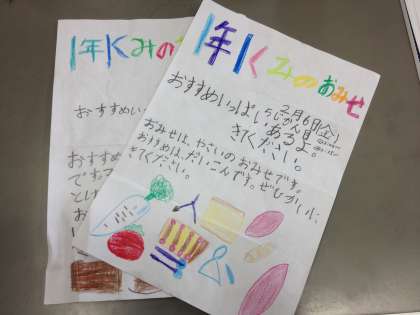 1年1くみのおみせ
2月6日(金)
5じかん目
おすすめいっぱい
あるよ。
きてください。
おみせは、やさいのおみせです。
おすすめは、だいこんです。ぜひかいに、
きてください。
1年1くみの
おすすめい
おすすめ
です。